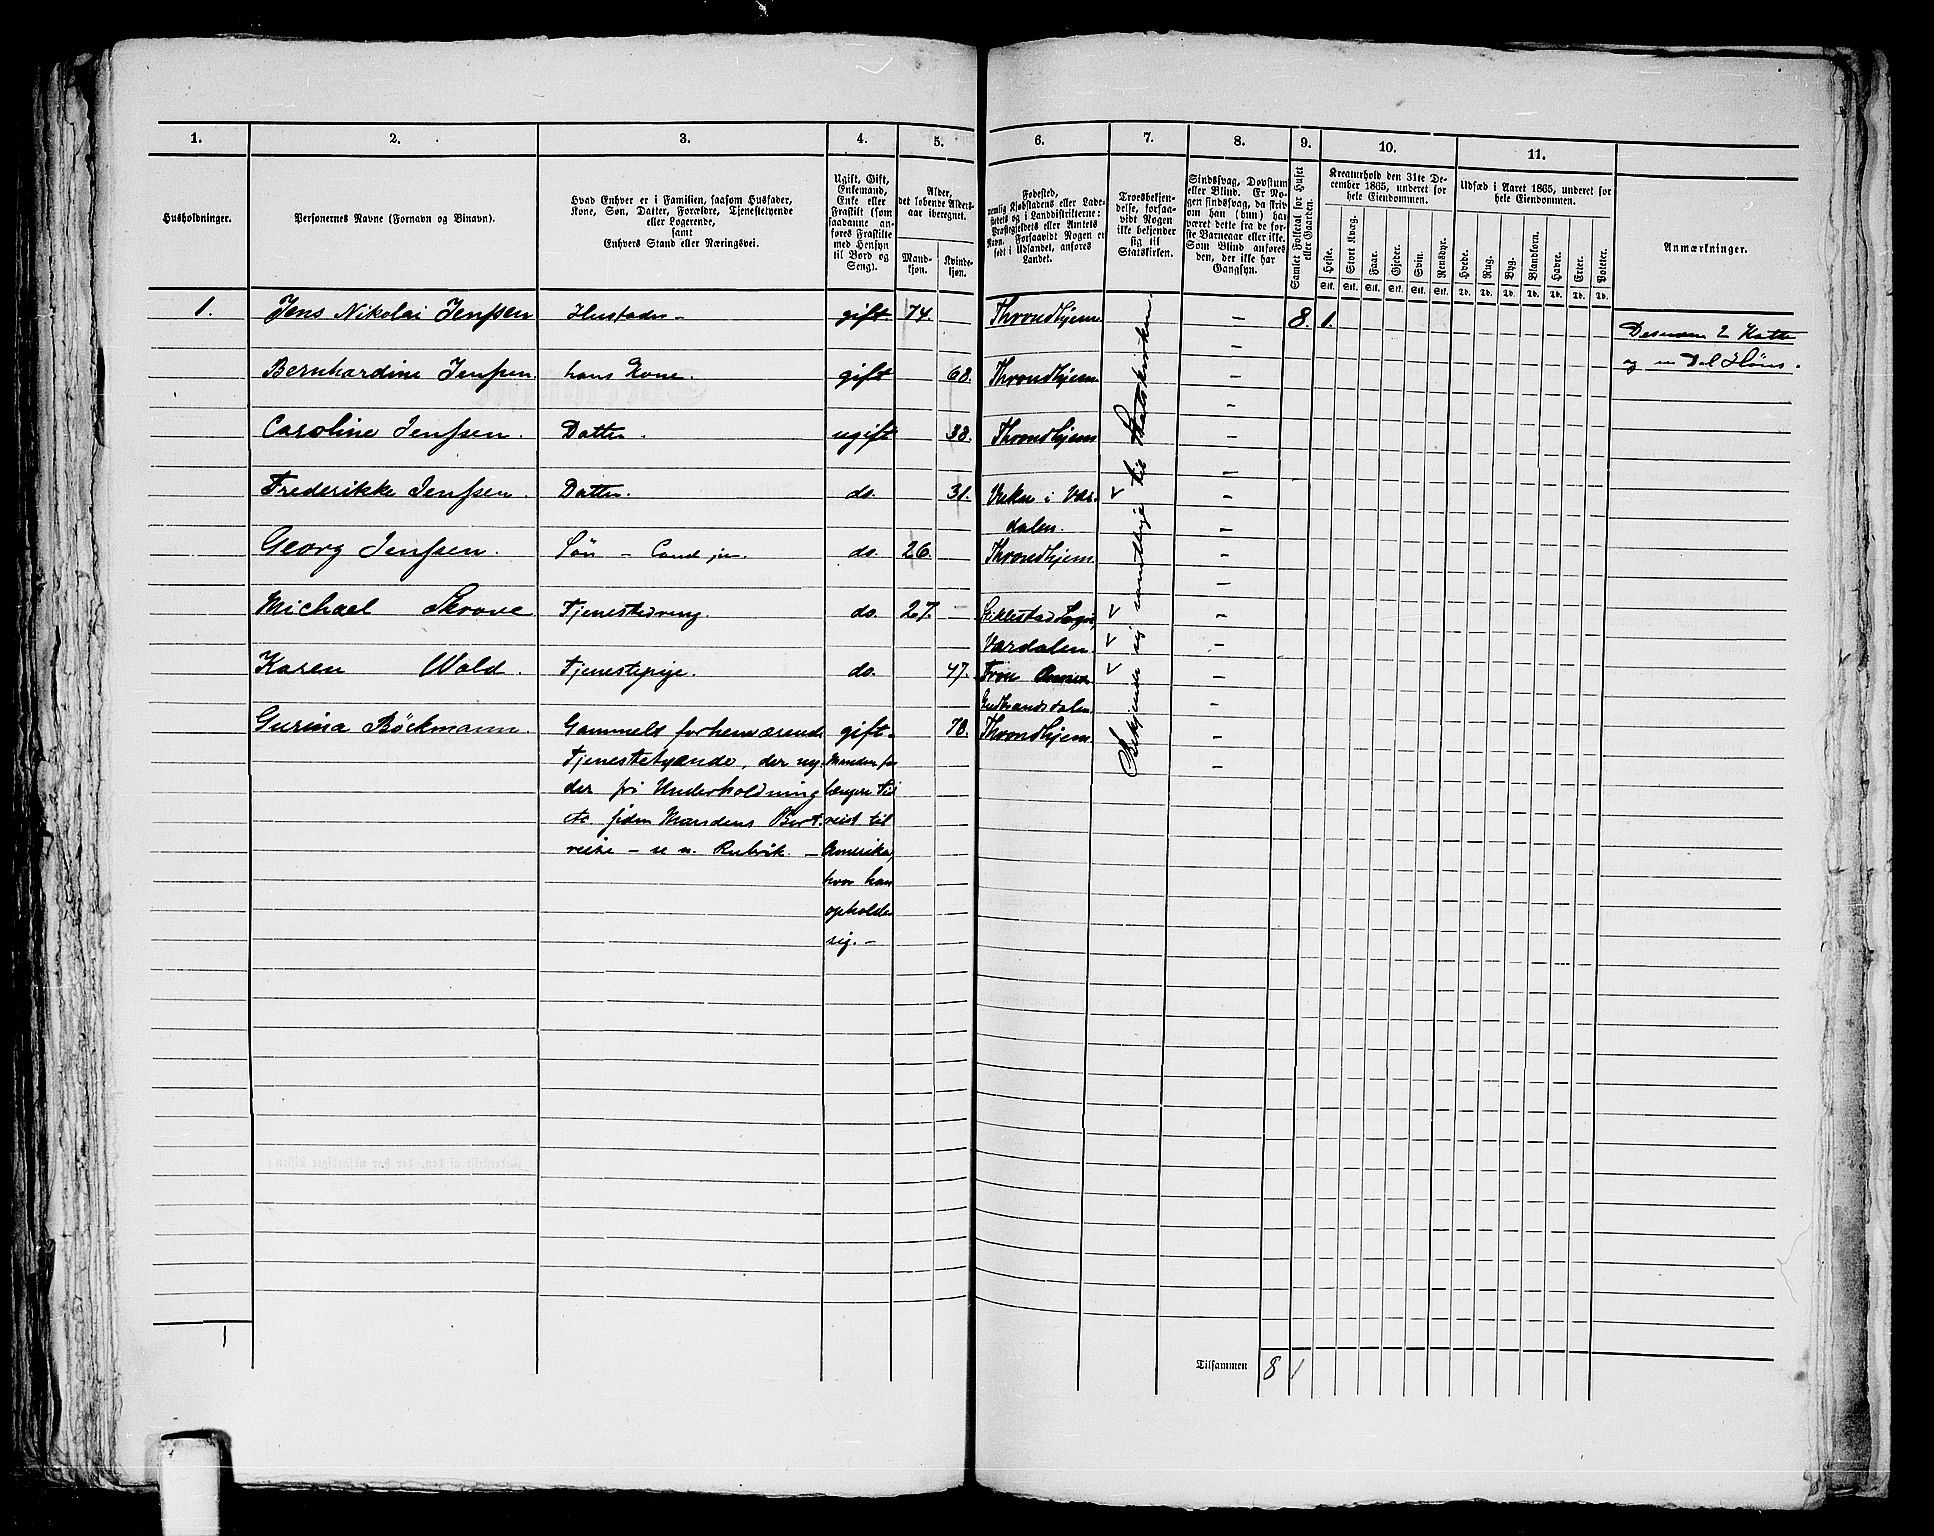 1. 2. 3. 4. 5. 6. 7. 8. 9. 10. 11.
Husholdninger.
Personernes Navne (Fornavn og Binavn).
Hvad Enhver er i Familien, saasom Husfader,
Kone, Søn, Datter, Forældre, Tjenestetyende
eller Logerende,
samt
Enhvers Stand eller Næringsvei.
Ugift, Gift,
Enkemand,
Enke eller
Fraskilt (som
saadanne an-
føres Fraskilte
med Hensyn
til Bord og
Seng).
Alder,
det løbende Alders-
aar iberegnet.
Mand-
kjøn.
Kvinde-
kjøn.
Fødested,
nemlig Kjøbstadens eller Lade-
stedets og i Landdistrikterne:
Præstegjeldets eller Amtets
Navn. Forsaavidt Nogen er
født i Udlandet, anføres
Landet.
Troesbekjen-
delse, forsaa-
vidt Nogen
ikke bekjender
sig til
Statskirken.
Sindssvag, Døvstum
eller Blind. Er No-
gen sindssvag, da skriv
om han (hun) har
været dette fra de for-
ste Barneaar eller ikke.
Som Blind anføres
den, der ikke har
Gangsyn.
Samlet Folketal for Huset
eller Gaarden.
Kreaturhold den 31te De-
cember 1865, underet for
hele Eiendommen.
Heste. Stort Kvæg. Faar. Gjeder. Svin. Rensdyr.
Stk. Stk. Stk. Stk. Stk. Stk.
Udsæd i Aaret 1865, underet for
hele Eiendommen.
Hvede. Rug. Byg. Blandkorn. Havre. Erter. Poteter.
Td. Td. Td. Td. Td. Td. Td.
Anmærkninger.
1. Jens Nikolai Jenssen Husfader - gift. 74. Throndhjem. - 8. 1. Desuden 2 Katte
og en Del Høns.
Bernhardine Jenssen. hans Kone. gift 68. Throndhjem. -
Caroline Jenssen. Datter. ugift 38. Throndhjem -
Frederikke Jenssen. Datter. do. 31. i Vær-
dalen.
Georg Jenssen. Søn - Cand jur. do. 26. Throndhjem. -
Michael Skrove Tjenestedreng. do. 27. Stiklestad Sogn,
Værdalen.
Karen Wold. Tjenestepige. do. 47. Fron
Gudbrandsdalen.
Gurina Böckmann. Gammelt forhenværende gift. 78. Throndhjem.
Tjenestetyende, der ny- Manden for
der fri Underholdning længere Tid
siden Mandens Bort- reist til
reise - Amerika,
hvor han
opholder
sig. -
Bekjender sig samtlige til Statskirken.
1
Tilsammen 8 1